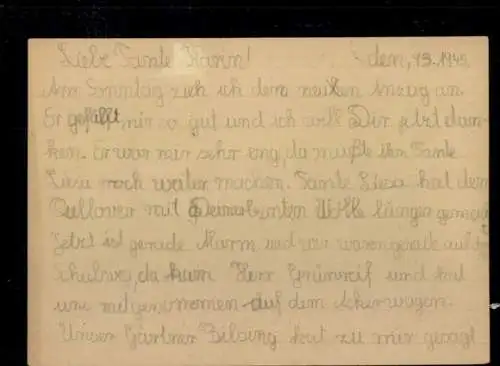 Liebe Tante Hann! den, 13. 1943
Am Sonntag zieh ich den neuen Anzug an.
Er gefällt mir so gut und ich will Dir jetzt dan-
ken. Er war mir sehr eng, da mußte ihn Tante
Liesa noch weiter machen. Tante Liesa hat den
Pullover mit Deiner bunten Wolle länger gemacht
Jetzt ist gerade Alarm und wir waren gerade auf dem
Schulweg, da kam Herr Grünreif und hat
uns mitgenommen auf dem Ackerwagen.
Unser Gärtner Bilsing hat zu mir gesagt